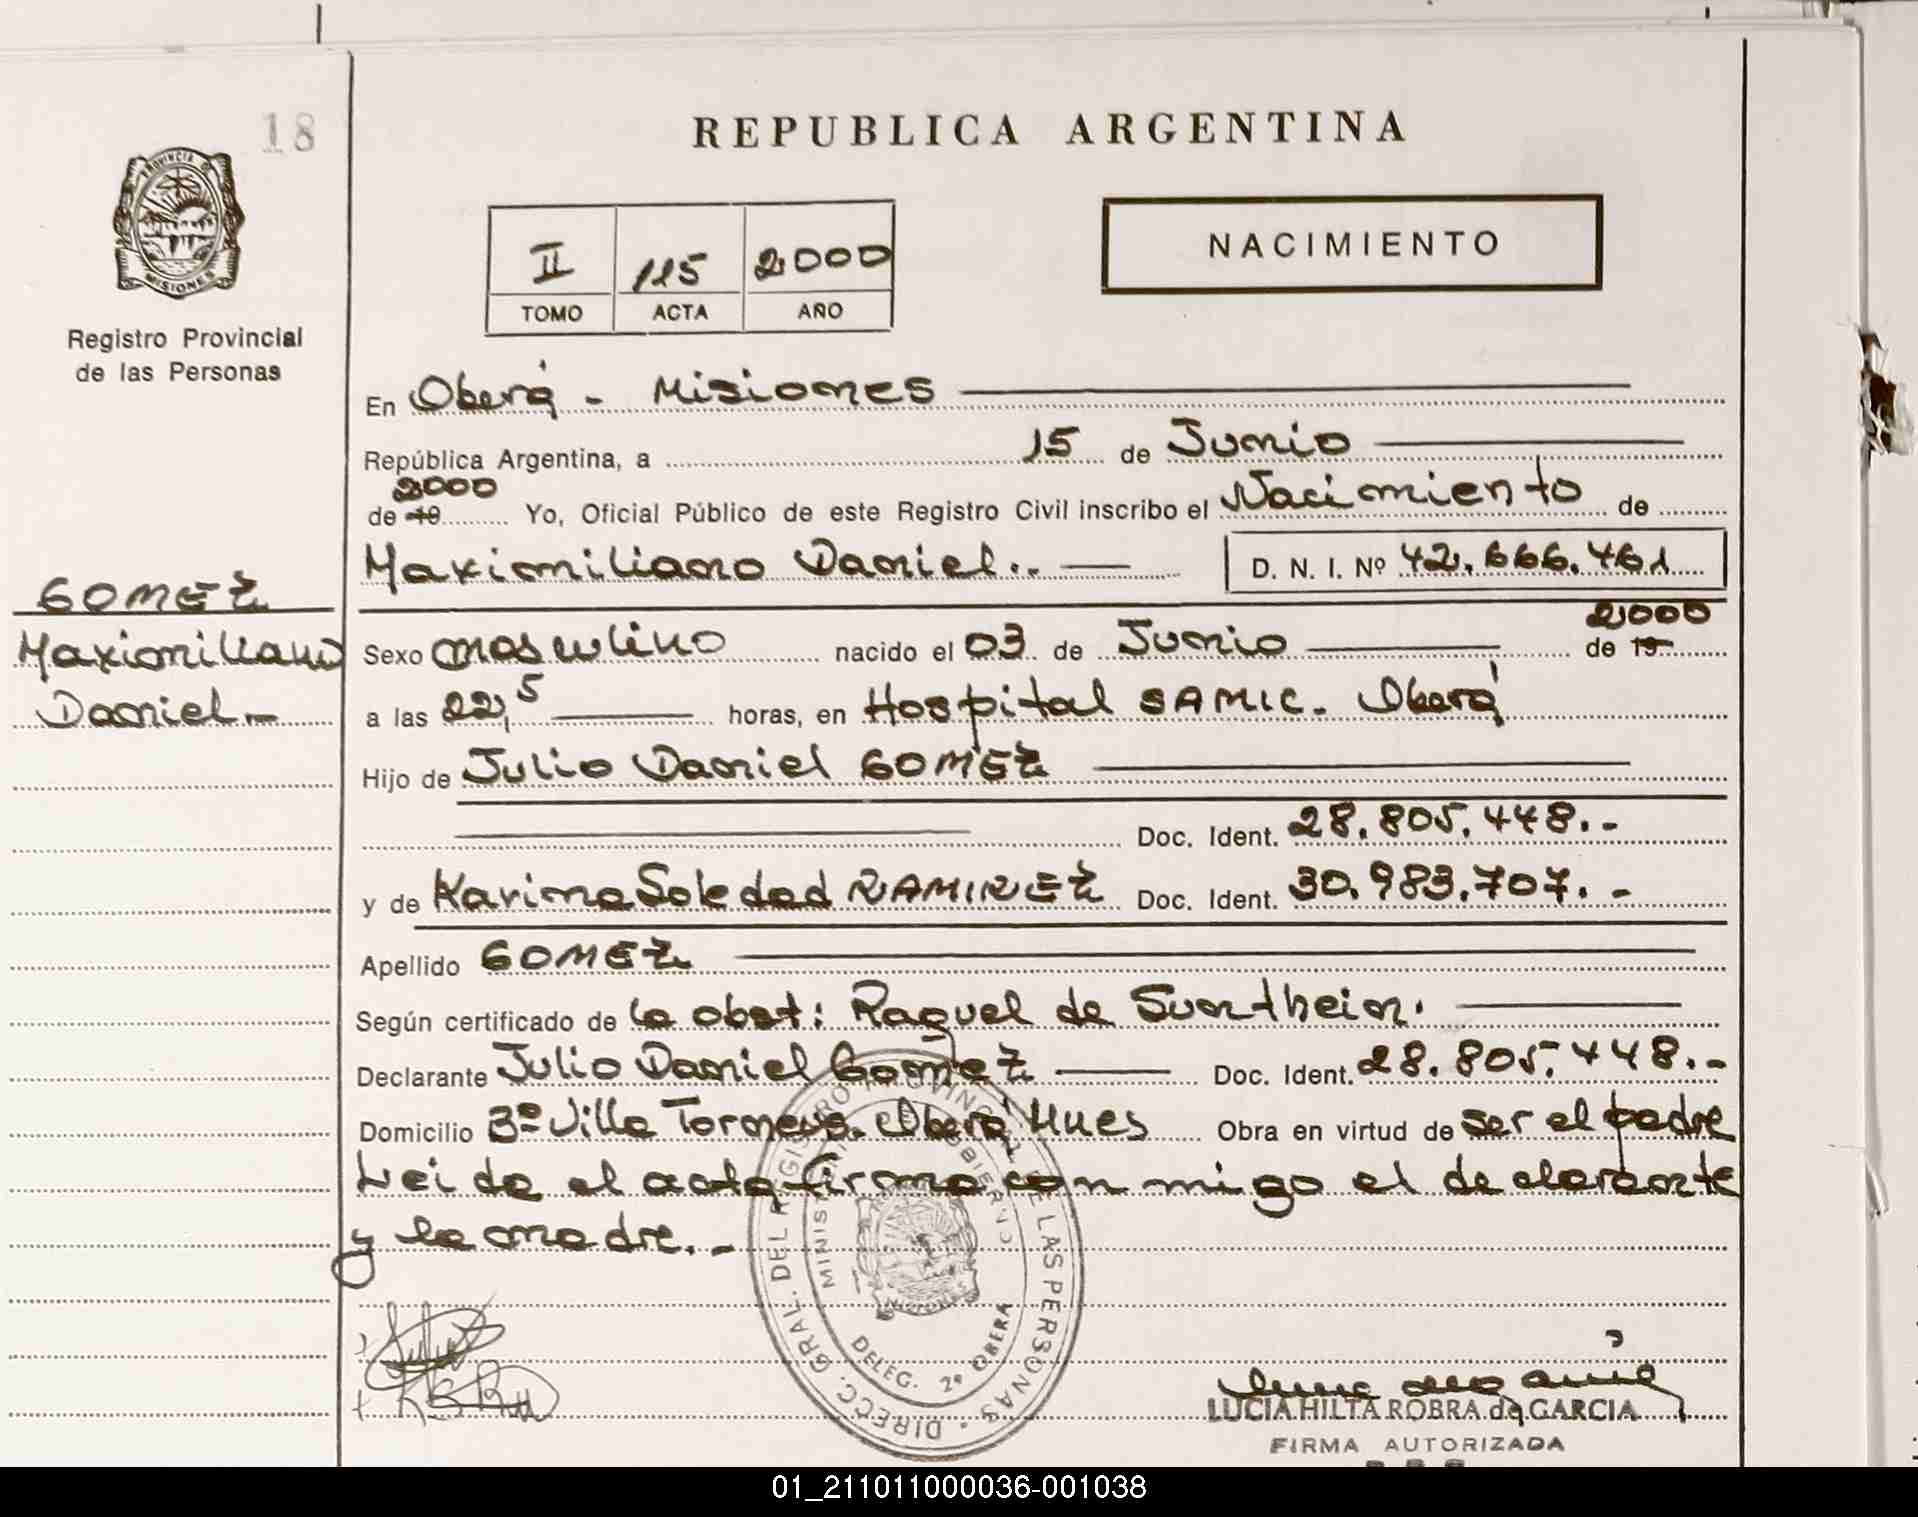 18
PROVINCIA DE
MISIONES
Registro Provincial
de las Personas
GOMEZ
Maximiliano
Daniel.-
REPUBLICA ARGENTINA
II 115 2000
TOMO ACTA AÑO
NACIMIENTO
En Oberá - Misiones
República Argentina, a 15 de Junio
2000
de 19 Yo, Oficial Público de este Registro Civil inscribo el Nacimiento de
Maximiliano Daniel.- D. N. I. Nº 42.666.461
2000
Sexo masculino nacido el 03 de Junio de 19
a las 22,5 horas, en Hospital SAMIC. Oberá
Hijo de Julio Daniel GOMEZ
Doc. Ident. 28.805.448.-
y de Karina Soledad RAMIREZ Doc. Ident. 30.983.707.-
Apellido GOMEZ
Según certificado de la obst: Raquel de Suntheim.
Declarante Julio Daniel Gomez Doc. Ident. 28.805.448.-
Domicilio Bº Villa Torneus. Oberá Mnes Obra en virtud de ser el padre
Leida el acta firma con migo el declarante
y la madre.-
DIRECC. GRAL. DEL REGISTRO PROVINCIAL DE LAS PERSONAS
DELEG. 2ª OBERA
LUCIA HILTA ROBRA de GARCIA
FIRMA AUTORIZADA
01_211011000036-001038